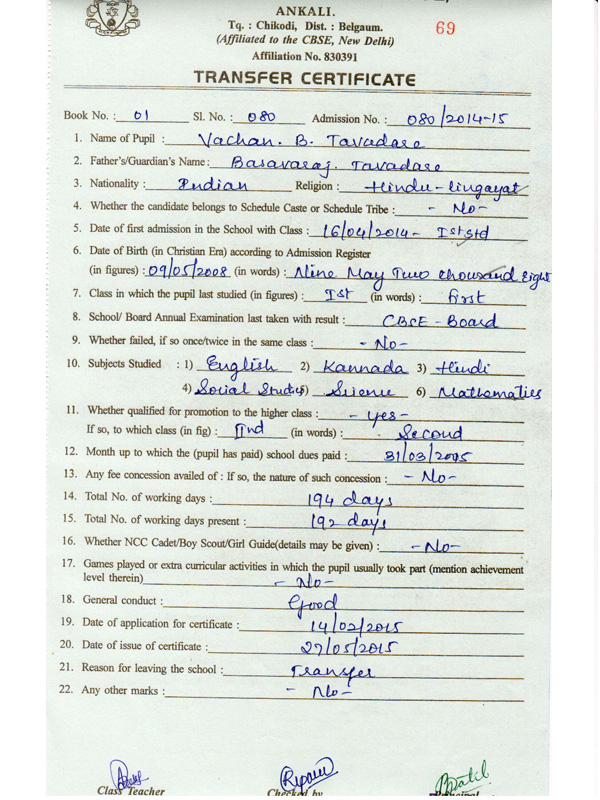 ANKALI.
Tq. : Chikodi, Dist. : Belgaum.
69
(Affiliated to the CBSE, New Delhi)
Affiliation No. 830391
TRANSFER CERTIFICATE
Book No. : 01 Sl. No. : 080 Admission No. : 080/2014-15
1. Name of Pupil : Vachan. B. Tavadare
2. Father's/Guardian's Name : Basavaraj. Tavadare
3. Nationality : Indian Religion : Hindu-lingayat
4. Whether the candidate belongs to Schedule Caste or Schedule Tribe : - No -
5. Date of first admission in the School with Class : 16/04/2014 - Ist std
6. Date of Birth (in Christian Era) according to Admission Register
(in figures) : 09/05/2008 (in words) : Nine May Two thousand Eight
7. Class in which the pupil last studied (in figures) : Ist (in words) : first
8. School/ Board Annual Examination last taken with result : CBCE - Board
9. Whether failed, if so once/twice in the same class : - No -
10. Subjects Studied : 1) English 2) Kannada 3) Hindi
4) Social Studies 5) Science 6) Mathematics
11. Whether qualified for promotion to the higher class : - yes -
If so, to which class (in fig) : IInd (in words) : Second
12. Month up to which the (pupil has paid) school dues paid : 31/03/2015
13. Any fee concession availed of : If so, the nature of such concession : - No -
14. Total No. of working days : 194 days
15. Total No. of working days present : 192 days
16. Whether NCC Cadet/Boy Scout/Girl Guide(details may be given) : - No -
17. Games played or extra curricular activities in which the pupil usually took part (mention achievement
level therein) - No -
18. General conduct : Good
19. Date of application for certificate : 14/02/2015
20. Date of issue of certificate : 27/05/2015
21. Reason for leaving the school : Transfer
22. Any other marks : - No -
Class Teacher Checked by Principal